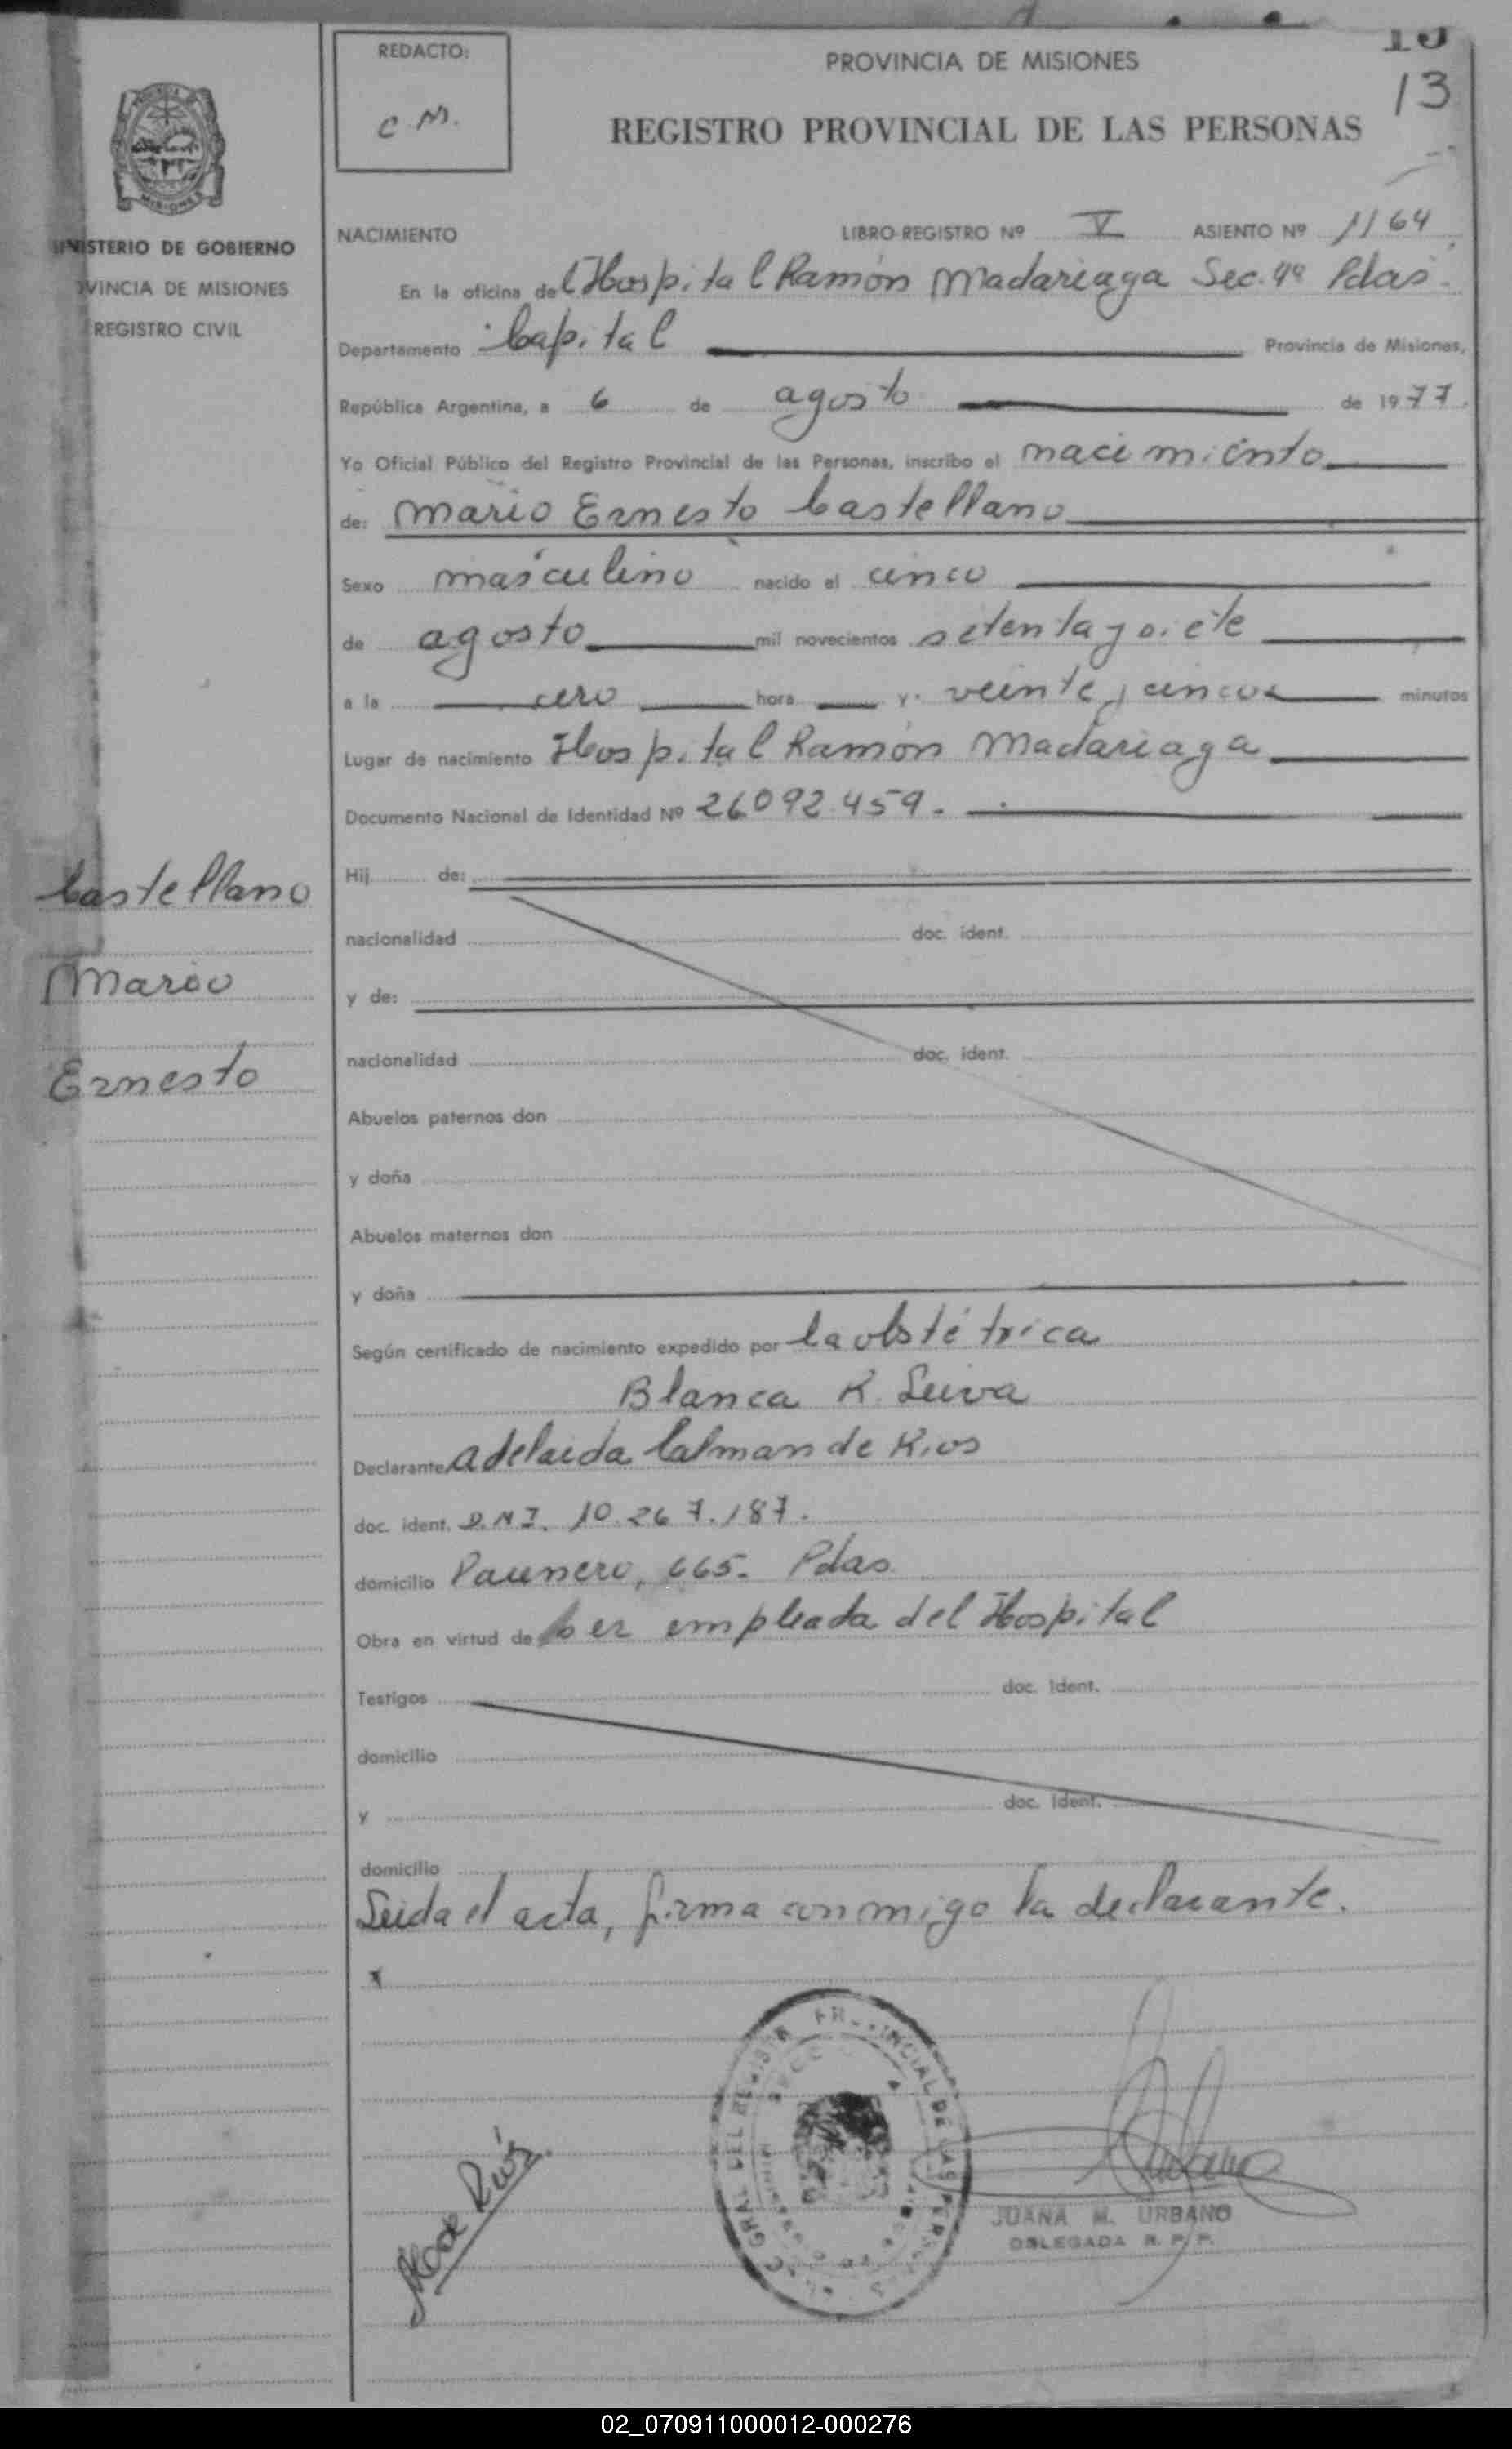 REDACTO:
C.M.
PROVINCIA DE MISIONES
13
REGISTRO PROVINCIAL DE LAS PERSONAS
MISIONES
MINISTERIO DE GOBIERNO
VINCIA DE MISIONES
REGISTRO CIVIL
NACIMIENTO LIBRO-REGISTRO Nº V ASIENTO Nº 1164
En la oficina del Hospital Ramón Madariaga Sec. 4ª Pdas.
Departamento Capital Provincia de Misiones,
República Argentina, a 6 de agosto de 1977.
Yo Oficial Público del Registro Provincial de las Personas, inscribo el nacimiento
de: Mario Ernesto Castellano
Sexo masculino nacido el cinco
de agosto mil novecientos setenta y siete
a la cero hora y veinte y cinco minutos
Lugar de nacimiento Hospital Ramón Madariaga
Documento Nacional de Identidad Nº 26092.459.
Hij de:
Castellano
nacionalidad doc. ident.
Mario
y de:
nacionalidad doc. ident.
Ernesto
Abuelos paternos don
y doña
Abuelos maternos don
y doña
Según certificado de nacimiento expedido por la obstétrica
Blanca R. Leiva
Declarante Adelaida Calman de Rios
doc. ident. D.N.I. 10.267.187.
domicilio Paunero, 665. Pdas
Obra en virtud de ser empleada del Hospital
Testigos doc. Ident.
domicilio
y doc. Ident.
domicilio
Leida el acta, firma conmigo la declarante.
JUANA M. URBANO
DELEGADA R. P. P.
02_070911000012-000276